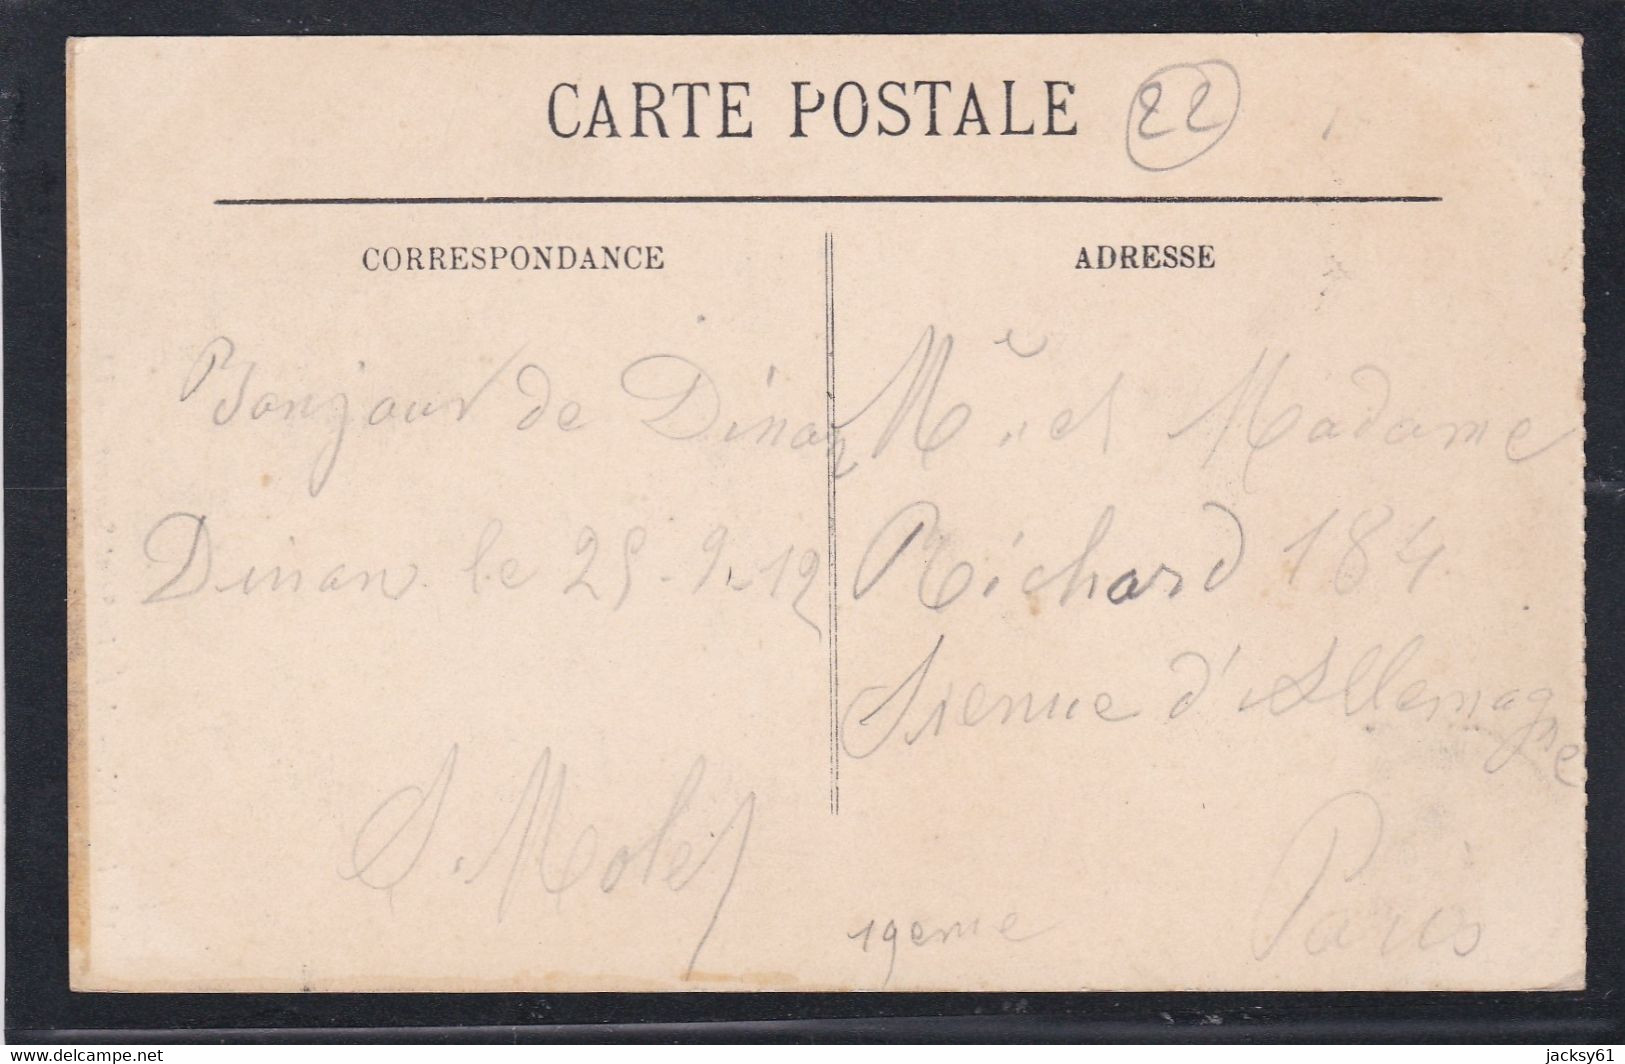 CARTE POSTALE
22
CORRESPONDANCE
Bonjour de Dinan
Dinan le 25-9-12
S. Molet
ADRESSE
Mr et Madame
Richard 184
d'Allemagne
Paris
19eme
delcampe.net
jacksy61